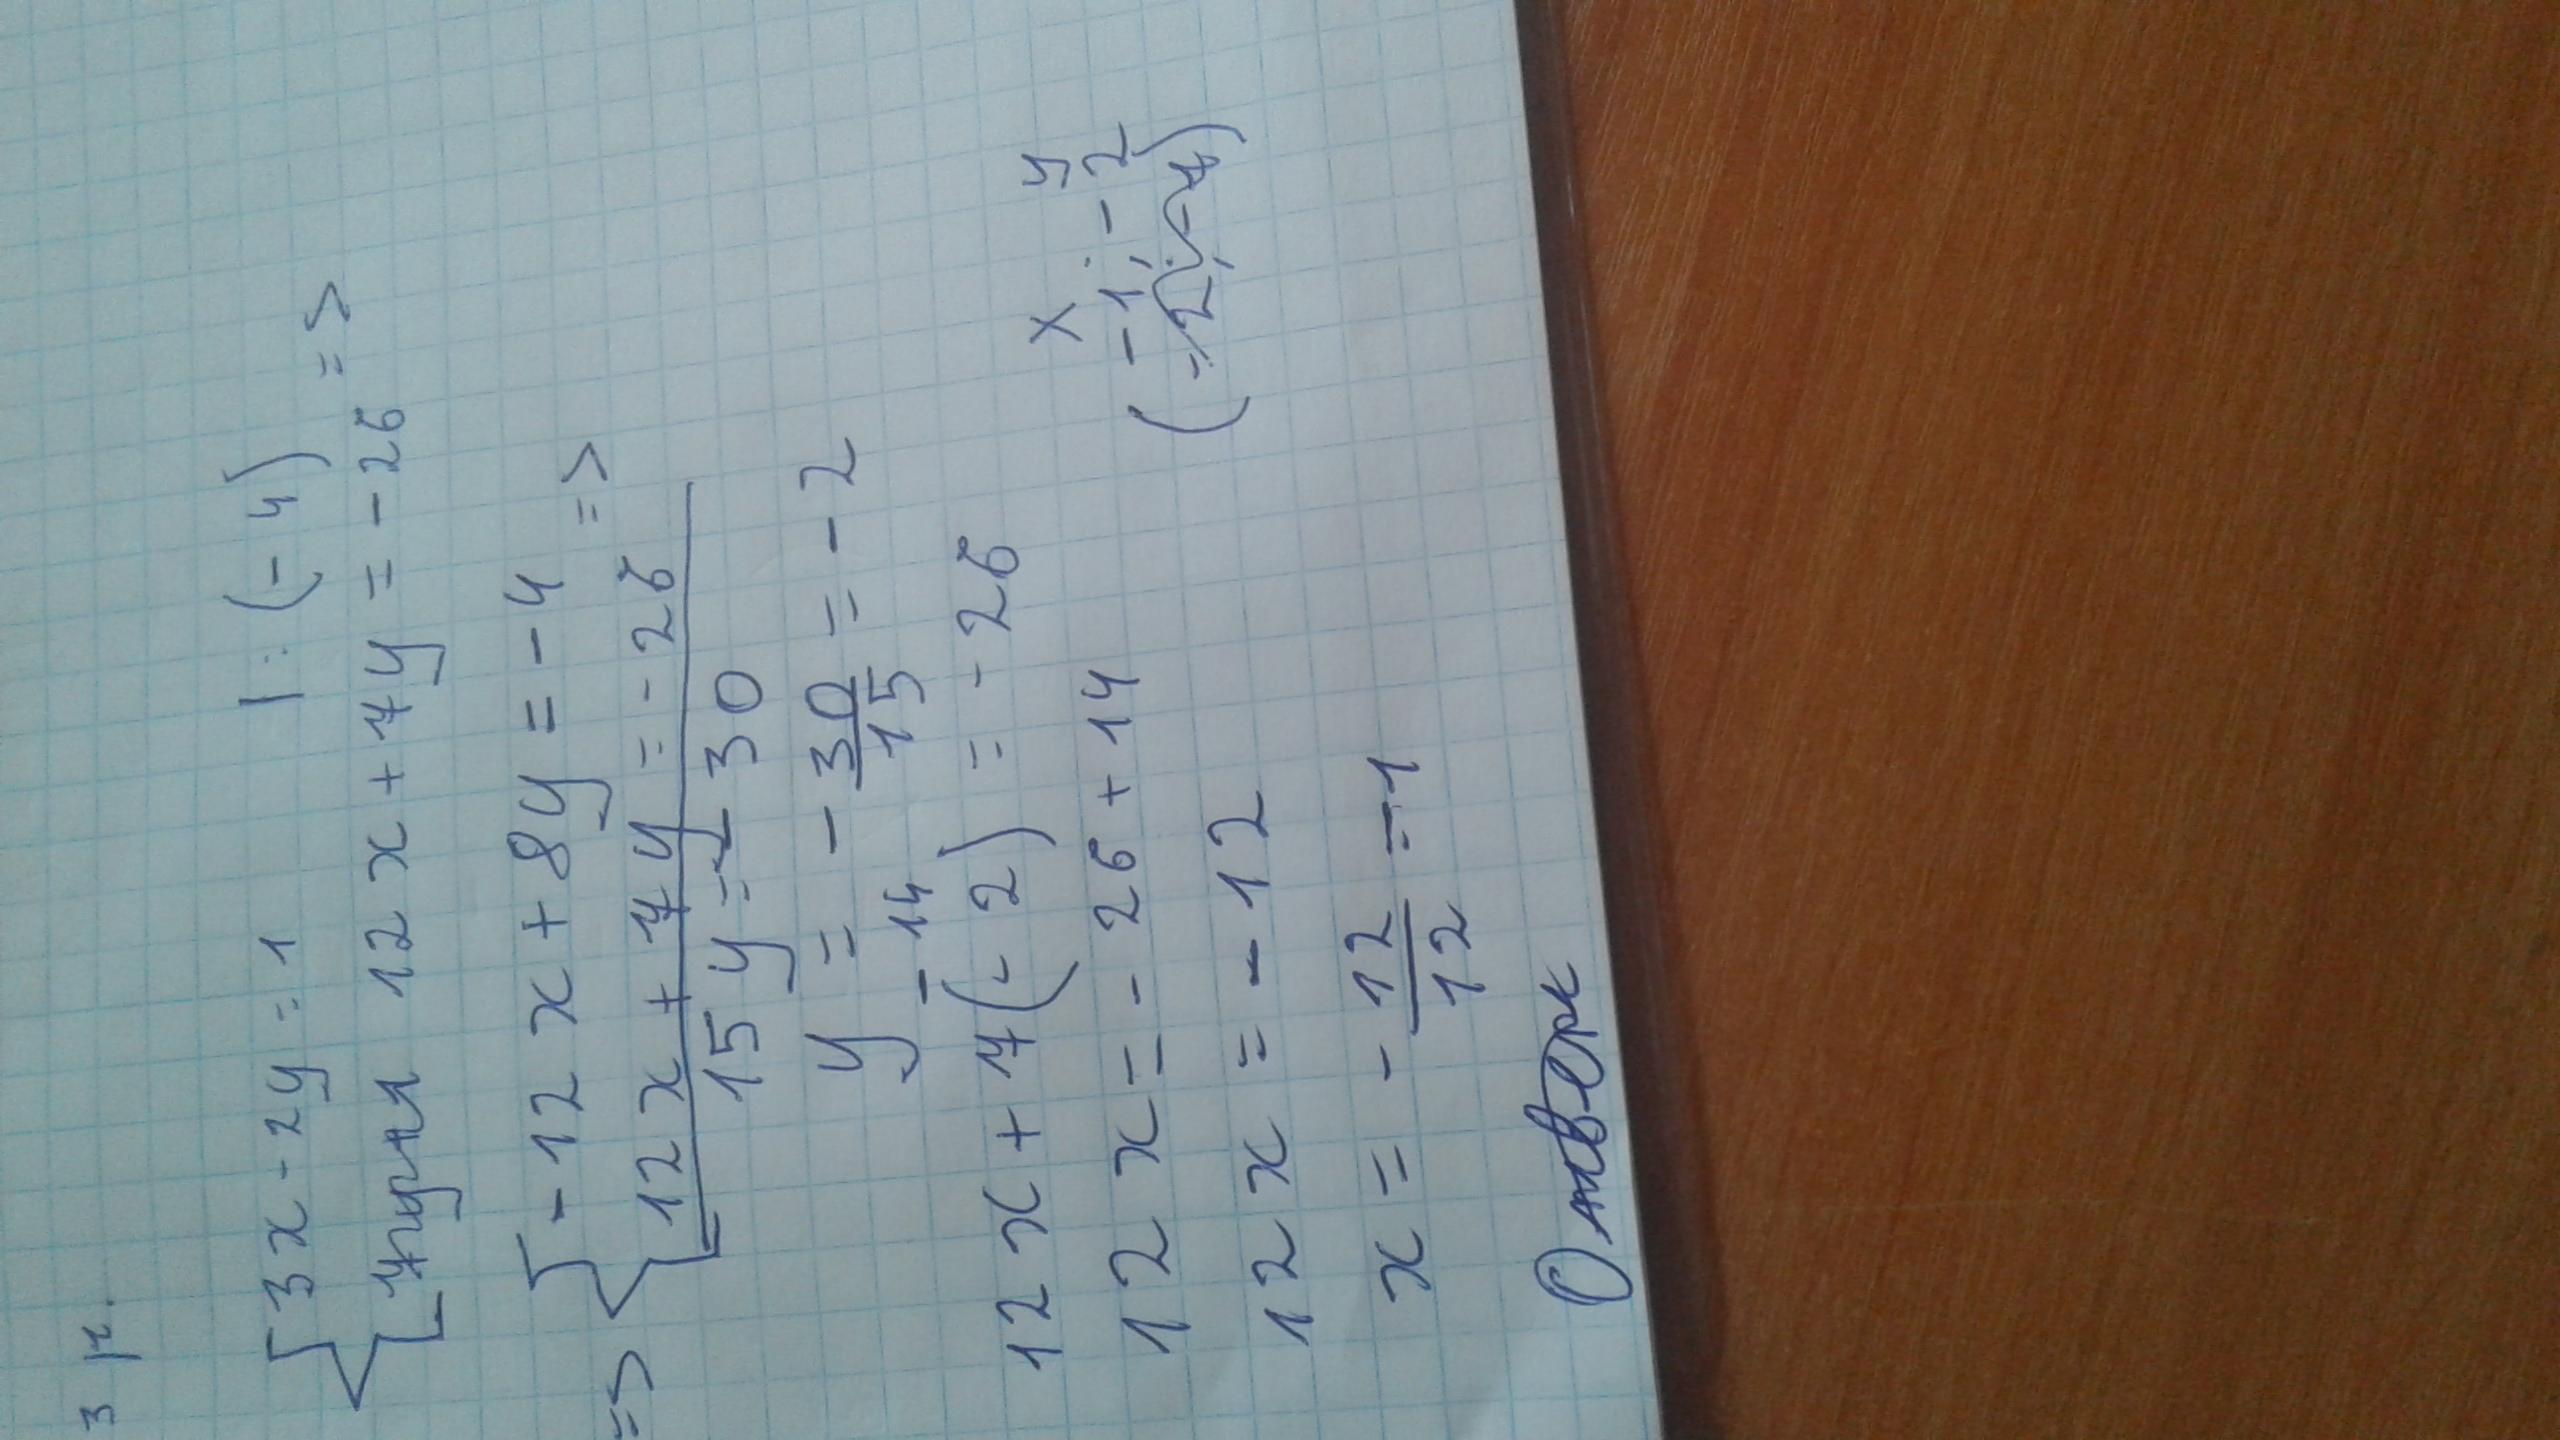 3
{ 3x - 2y = 1 |: (-4)
12x + 7y = -26 =>
=> { -12x + 8y = -4
12x + 7y = -26 =>
15y = -30
y = - 30/15 = -2
-14
12x + 7(-2) = -26
12x = -26 + 14
x y
12x = -12
(-1; -2
x = - 12/12 = -1
-2; -4)